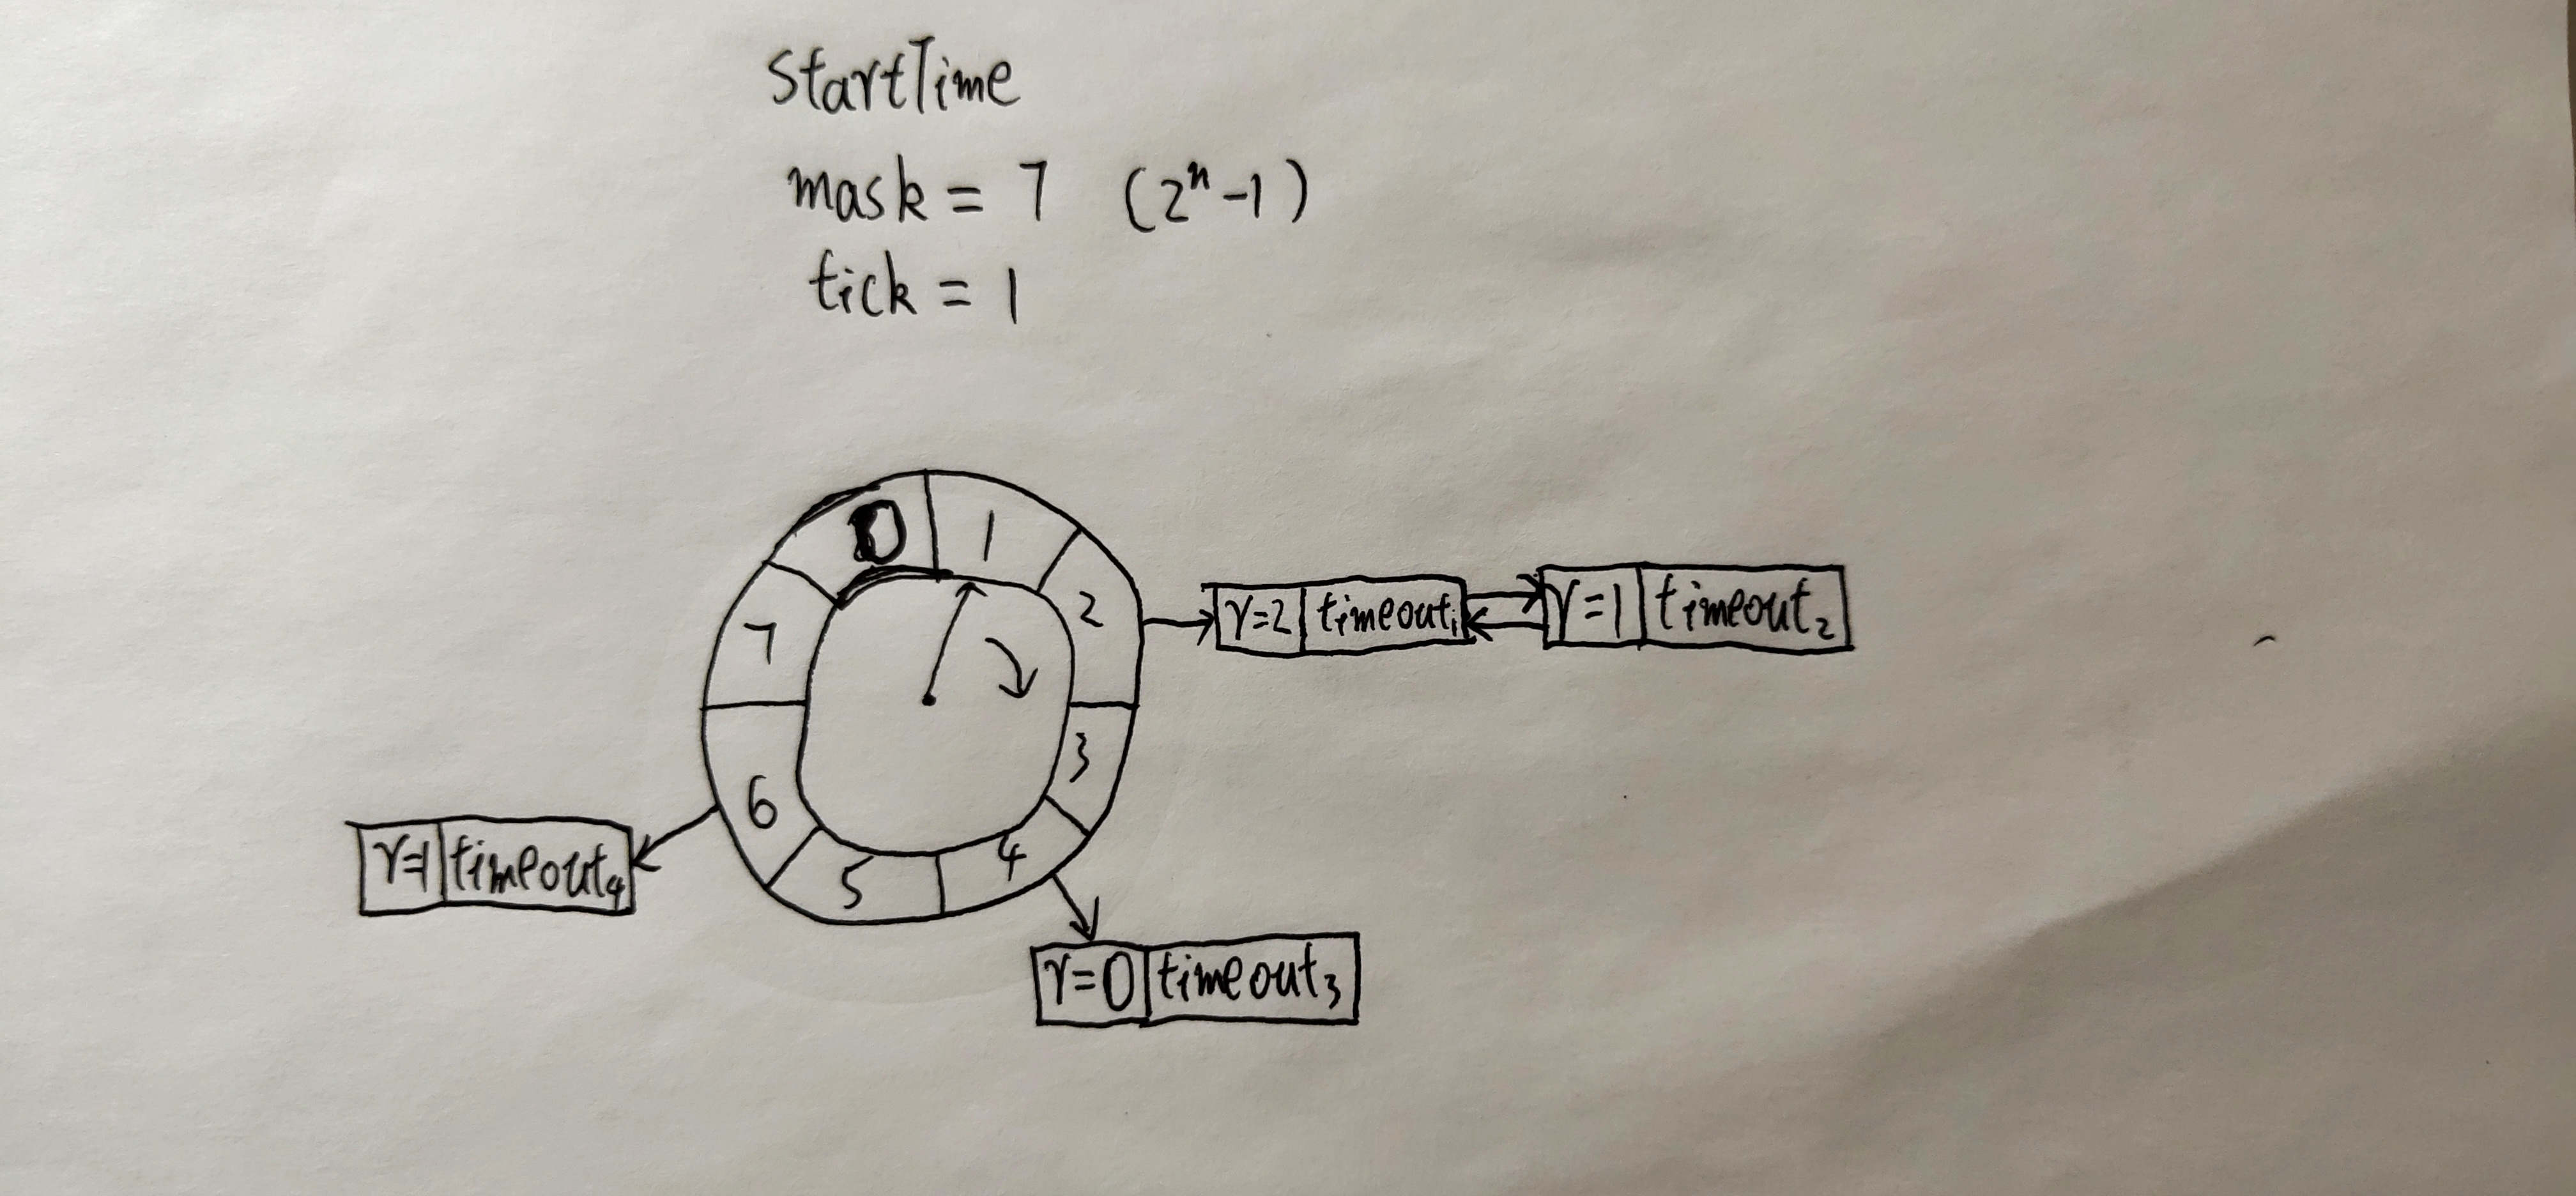 startTime
mask = 7 (2ⁿ-1)
tick = 1
0 1
7 2
r=2 timeout₁ r=1 timeout₂
6 3
5 4
r=1 timeout₄
r=0 timeout₃